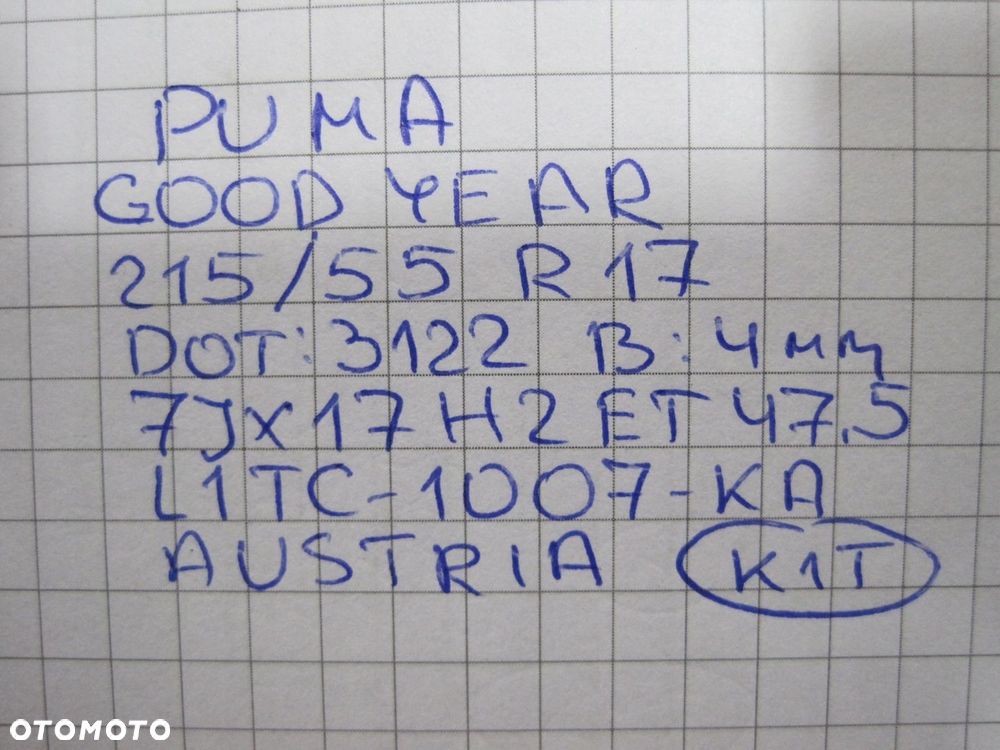 PUMA
GOOD YEAR
215/55 R 17
DOT: 3122 B: 4 mm
7Jx17 H2 ET 47,5
L1TC-1007-KA
AUSTRIA K1T
OTOMOTO